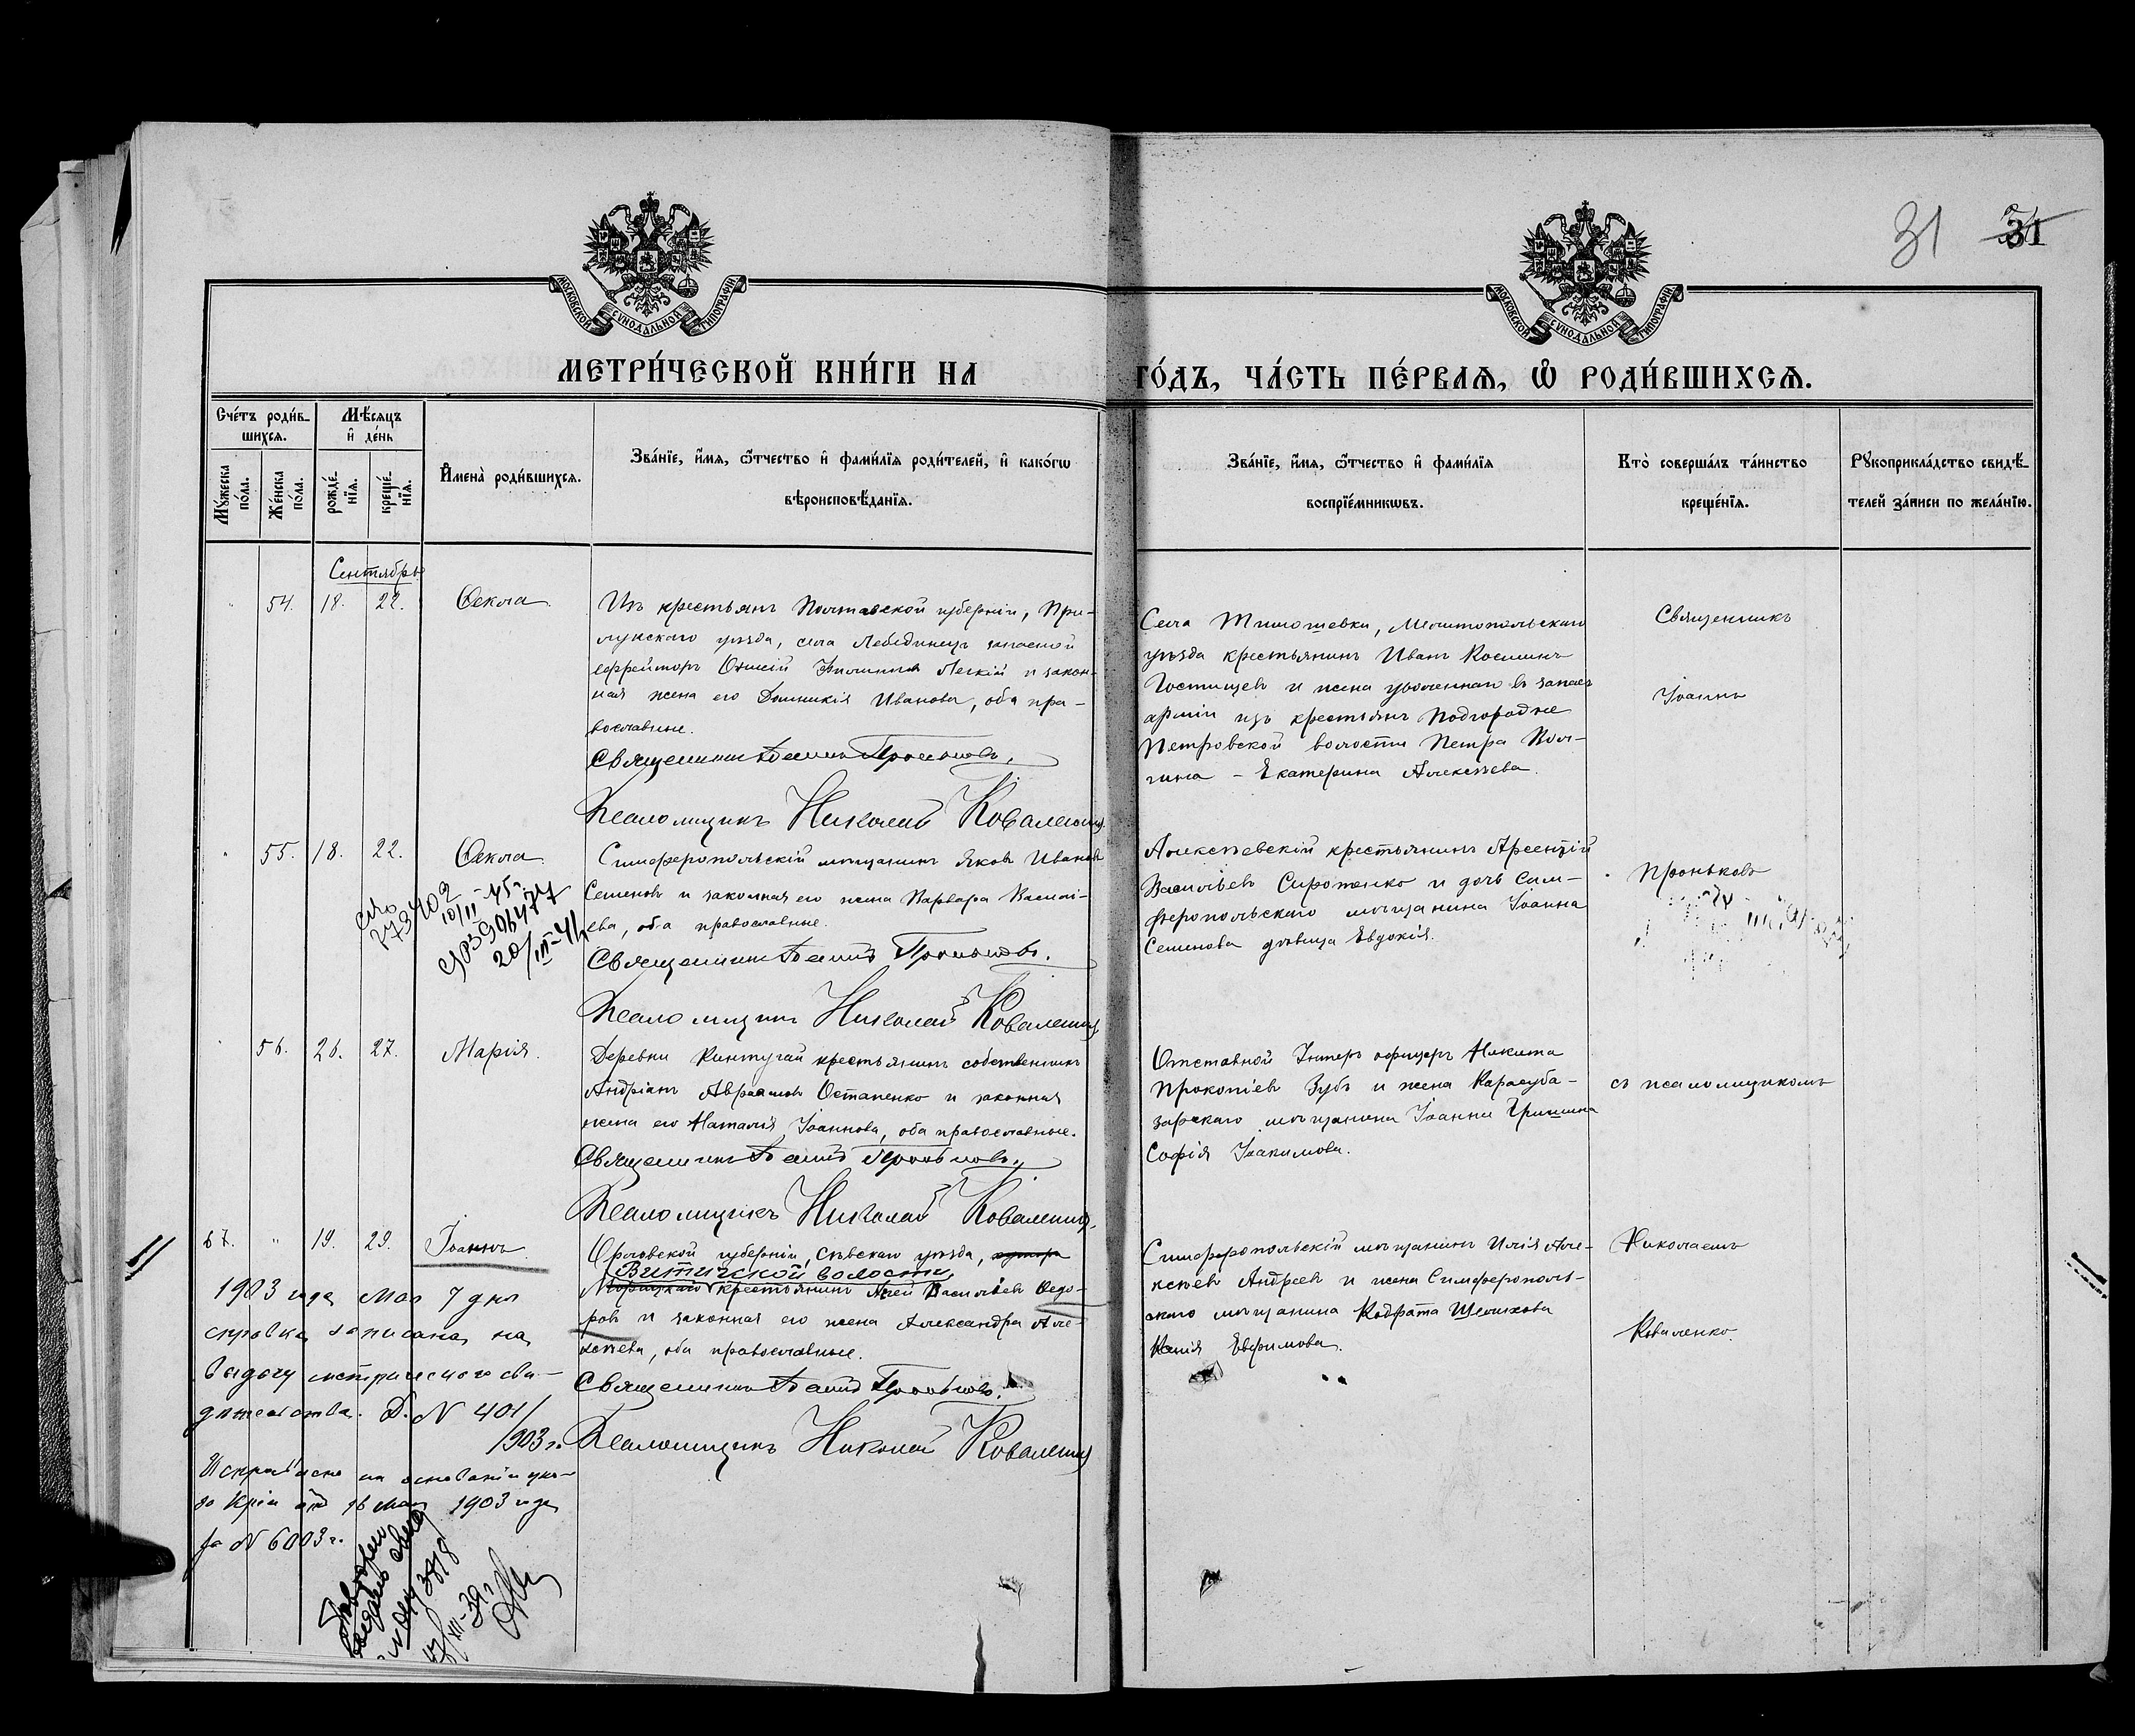 31 31
МОСКОВСКОЙ СУНОДАЛЬНОЙ ТИПОГРАФІИ.
МОСКОВСКОЙ СУНОДАЛЬНОЙ ТИПОГРАФІИ.
МЕТРИ́ЧЕСКОЙ КНИ́ГИ НА ГО́ДЪ, ЧА́СТЬ ПЕ́РВАѦ, Ѽ РОДИ́ВШИХСѦ.
Сче́тъ роди́в-
шихсѧ.
Мꙋжеска по́ла.
Же́нска по́ла.
Мѣ́сѧцъ
и҆ де́нь
рожде́-нїѧ.
креще́-нїѧ.
И҆мена̀ роди́вшихсѧ.
Зва́нїе, и҆́мѧ, ѻ҆́тчество и҆ фами́лїѧ роди́телей, и҆ како́гѡ
вѣроисповѣ́данїѧ.
Зва́нїе, и҆́мѧ, ѻ҆́тчество и҆ фами́лїѧ
воспрїе́мникѡвъ.
Кто̀ соверша́лъ та́инство
креще́нїѧ.
Рꙋкоприкла́дство свидѣ́-
телей за́писи по жела́нїю.
Сентябрь
54. 18. 22. Ѳекла.
Изъ крестьянъ Полтавской губерніи, При-
лукскаго уѣзда, села Лебединецъ запасной
ефрейторъ Легкій и закон-
ная жена его Домникія Иванова, оба пра-
вославные.
Священникъ Іоаннъ Проньковъ.
Псаломщикъ Николай Коваленко
Села Тимошевки, Мелитопольскаго
уѣзда крестьянинъ Иванъ Косминъ
Гостищевъ и жена уволеннаго въ запасъ
арміи изъ крестьянъ Подгородне
Петровской волости Петра Вол-
гина - Екатерина Алексѣева.
Священникъ
Іоаннъ
55. 18. 22. Ѳекла
Симферопольскій мѣщанинъ Яковъ Ивановъ
Семеновъ и законная его жена Варвара Василі-
ева, оба православные.
Священникъ Іоаннъ Проньковъ.
Псаломщикъ Николай Коваленко
Алексѣевскій крестьянинъ Арсентій
Васильевъ Сиротенко и дочь Сим-
феропольскаго мѣщанина Іоанна
Семенова дѣвица Евдокія.
Проньковъ
56. 26. 27. Марія.
Деревни Кинтугай крестьянинъ собственникъ
Андріанъ Авраамовъ Остапенко и законная
жена его Наталія Іоаннова, оба православные.
Священникъ Іоаннъ Проньковъ.
Псаломщикъ Николай Коваленко.
Отставной Унтеръ офицеръ Никита
Прокопіевъ Зубъ и жена Карасуба-
зарскаго мѣщанина Іоанна Гришина
Софія Іоакимова.
съ псаломщикомъ
67. " 19. 29. Іоаннъ.
Орловской губерніи, Сѣвскаго уѣзда,
волости
крестьянинъ Васильевъ Ѳедо-
ровъ и законная его жена Александра Але-
ксѣева, оба православные.
Священникъ Іоаннъ Проньковъ.
Псаломщикъ Николай Коваленко
Симферопольскій мѣщанинъ Илія Але-
ксѣевъ Андреевъ и жена Симферополь-
скаго мѣщанина Кодрата Шелихова
Ксенія Евфимова.
Николаемъ
Коваленко.
1903 года Мая 7 дня
справка записана на
выдачу метрическаго сви-
дѣтельства. Д. N 401/
1903 г.
Исправлено на основаніи ука-
за 16 Мая 1903 года
за N 6003 г.